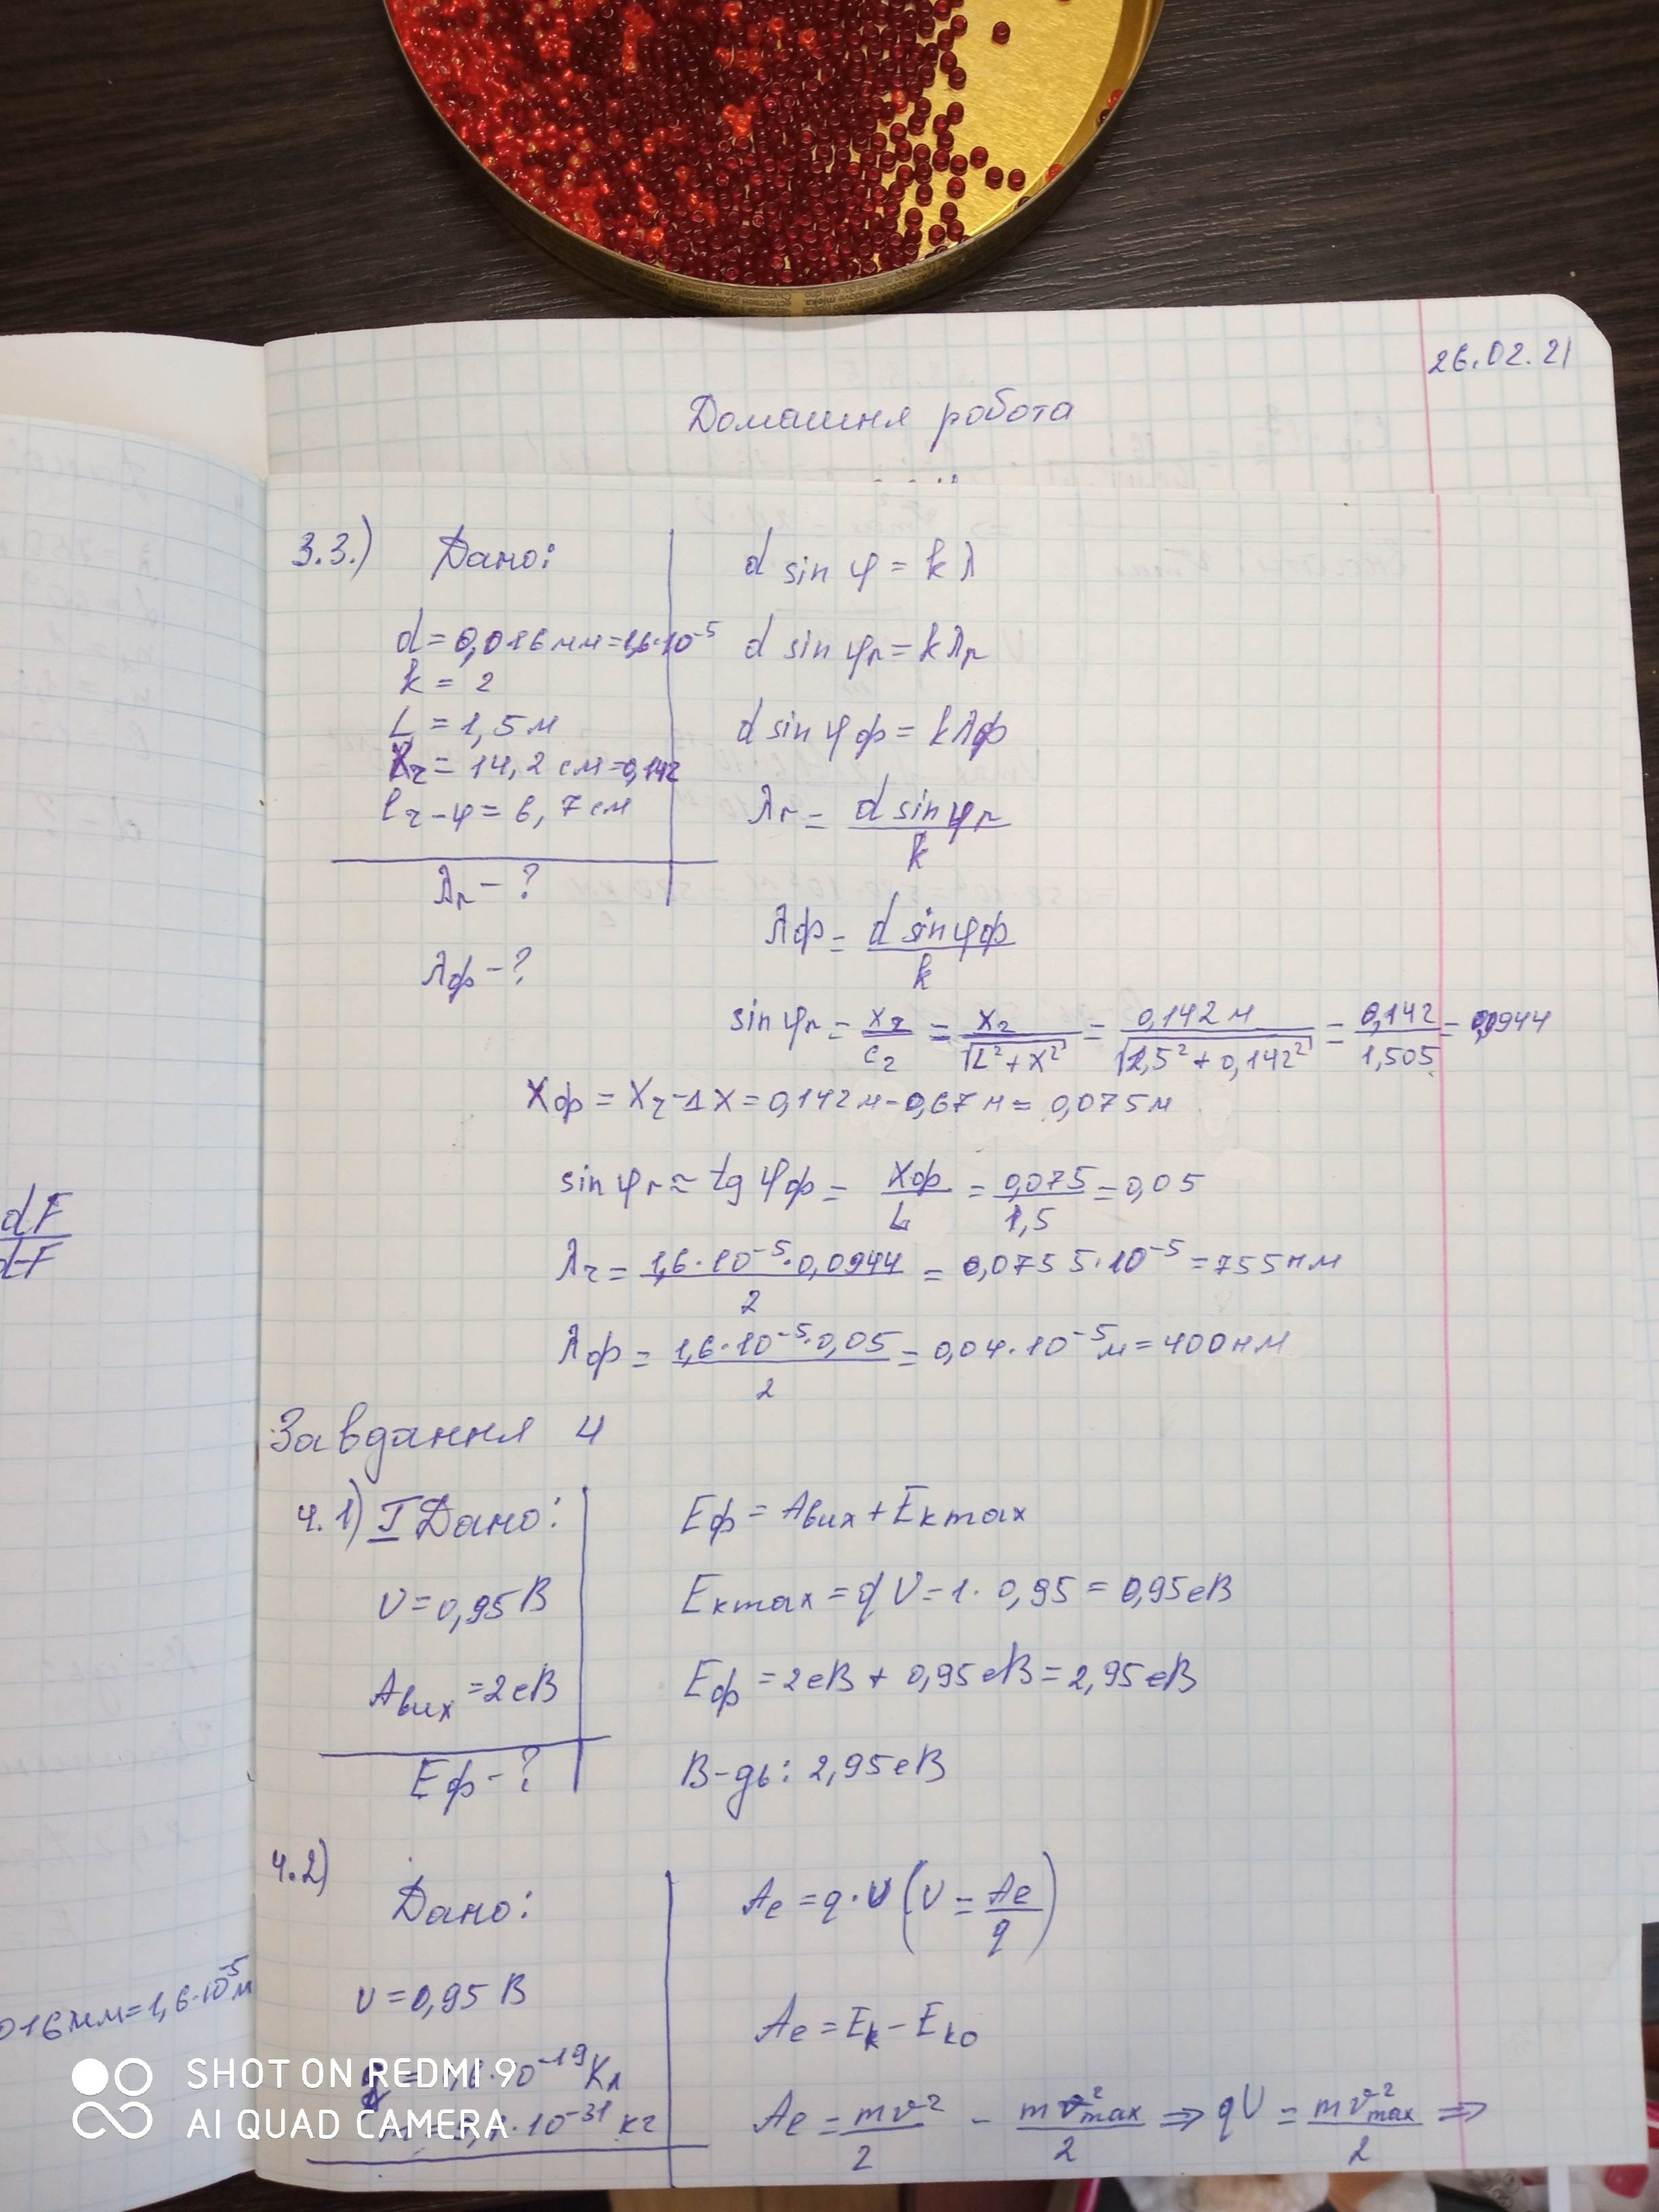 26.02.21
Домашня робота
3.3.) Дано:
d = 0,016 мм = 1,6·10⁻⁵
k = 2
L = 1,5 м
X₂ = 14,2 см = 0,142
l₂-φ = 6,7 см
λr - ?
λф - ?
d sin φ = k λ
d sin φr = k λr
d sin φф = k λф
λr = d sin φr / k
λф = d sin φф / k
sin φr = X₂ / c₂ = X₂ / √L² + X² = 0,142 м / √1,5² + 0,142² = 0,142 / 1,505 = 0,0944
Xф = X₂ - ΔX = 0,142 м - 0,67 м = 0,075 м
sin φr ≈ tg φф = Xф / L = 0,075 / 1,5 = 0,05
λ₂ = 1,6·10⁻⁵·0,0944 / 2 = 0,0755·10⁻⁵ = 755 нм
λф = 1,6·10⁻⁵·0,05 / 2 = 0,04·10⁻⁵ м = 400 нм
Завдання 4
4.1) I Дано:
U = 0,95 В
Aвих = 2 еВ
Eф - ?
Eф = Aвих + Eкmax
Eкmax = qU = 1·0,95 = 0,95 еВ
Eф = 2 еВ + 0,95 еВ = 2,95 еВ
В-дь: 2,95 еВ
4.2)
Дано:
U = 0,95 В
10⁻¹⁹ Кл
·10⁻³¹ кг
Ae = q·U (U = Ae / q)
Ae = Ek - Ek0
Ae = mv² / 2 - mv²max / 2 ⇒ qU = mv²max / 2 ⇒
dF
dF
016 мм = 1,6·10⁻⁵ м
SHOT ON REDMI 9
AI QUAD CAMERA